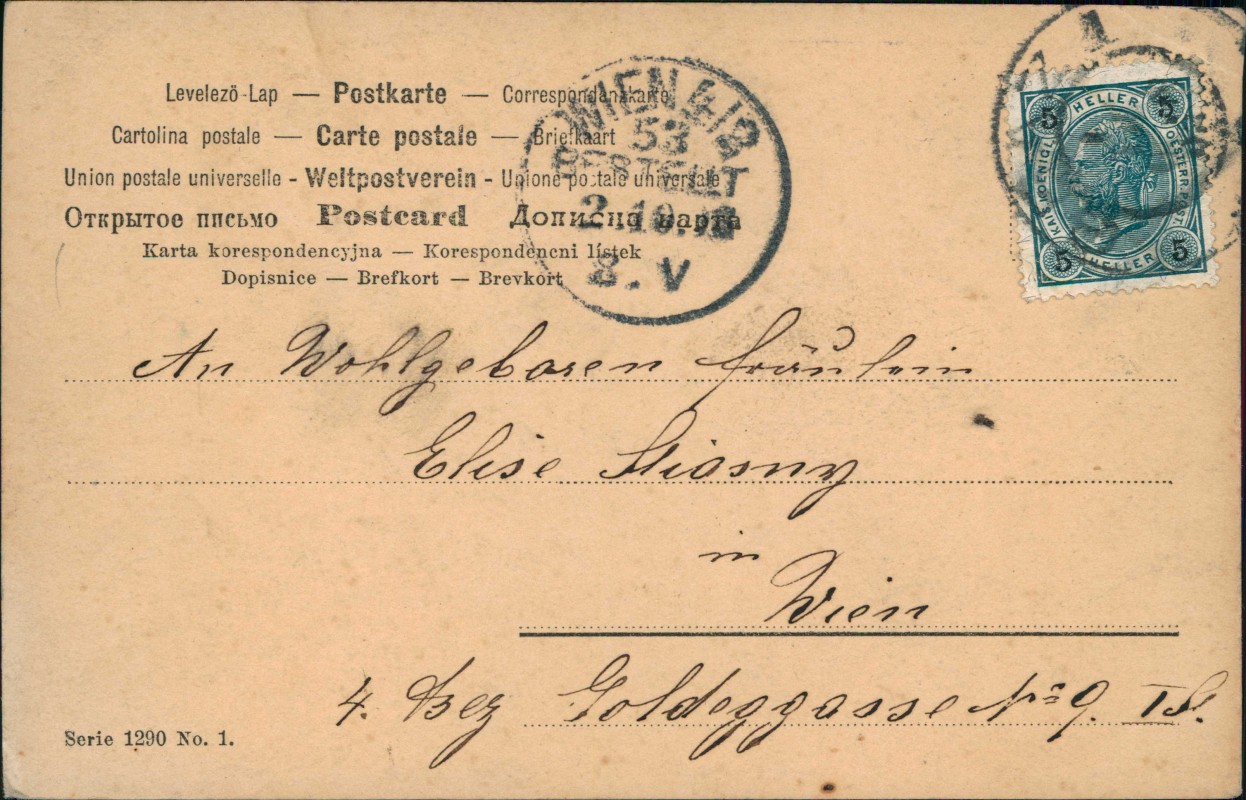 Levelező-Lap — Postkarte — Correspondenzkarte
Cartolina postale — Carte postale — Briefkaart
Union postale universelle - Weltpostverein - Unione postale universale
Открытое письмо Postcard Дописна карта
Karta korespondencyjna — Korespondencni lístek
Dopisnice — Brefkort — Brevkort
WIEN 4/2
53
BESTELLT
2. 10.
8. V
5 HELLER 5
KAIS. KOENIGL. OESTERR. POST
5 HELLER 5
An Wohlgeboren Fräulein
Elise Stiasny
in
Wien
4. Bez Goldeggasse No 9. I S.
Serie 1290 No. 1.